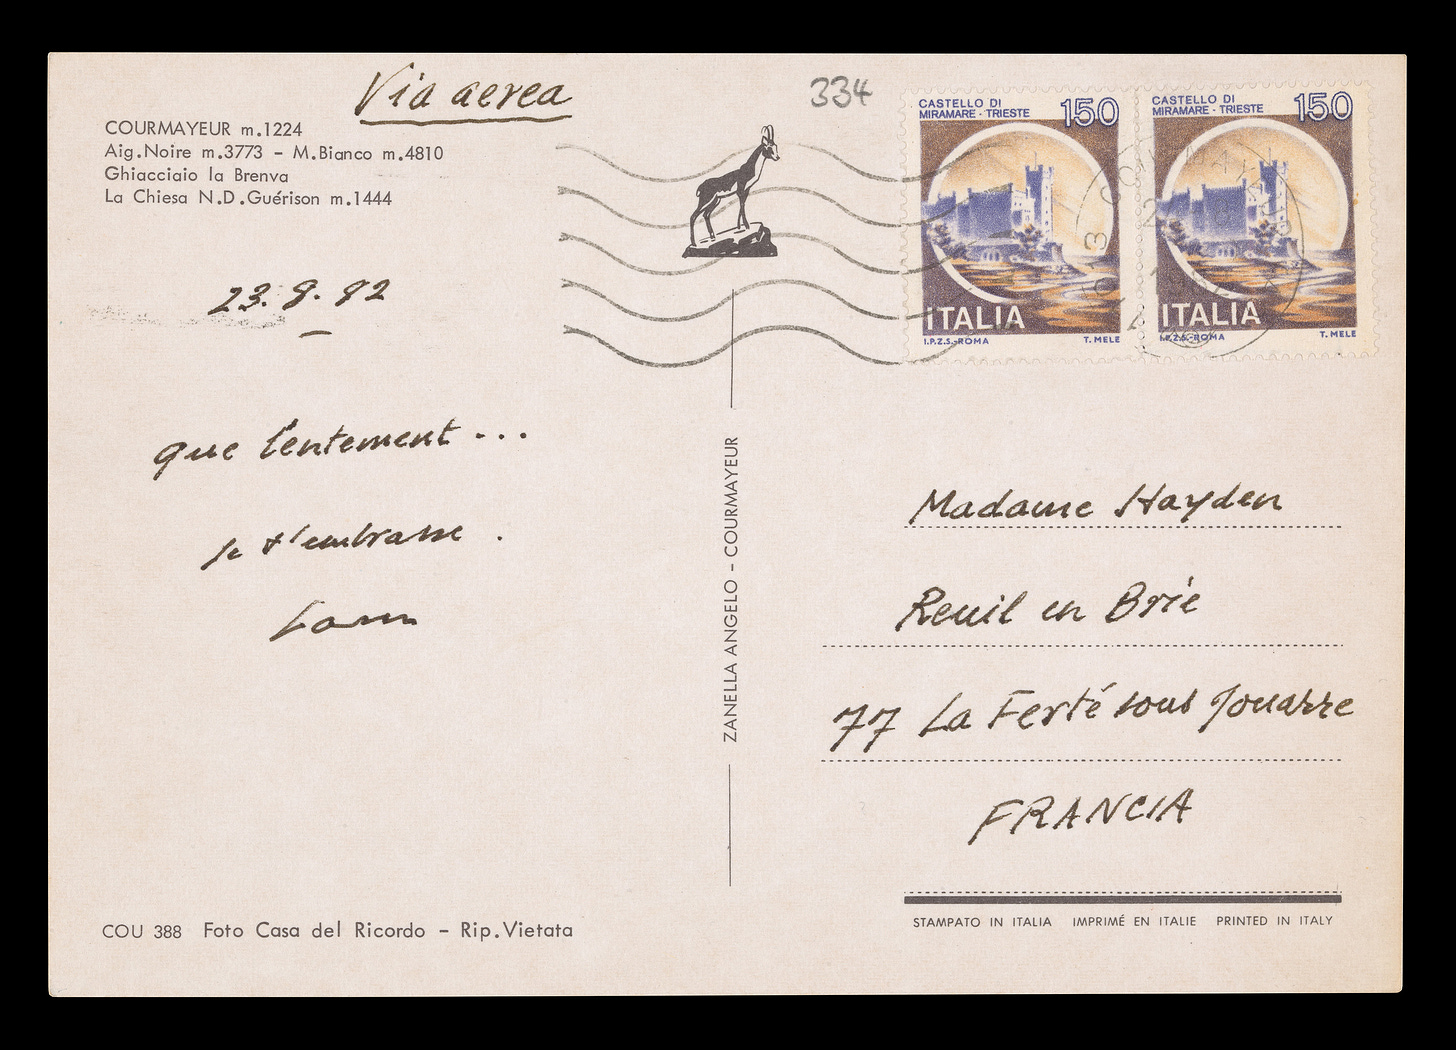 Via aerea
334
COURMAYEUR m.1224
Aig.Noire m.3773 – M.Bianco m.4810
Ghiacciaio la Brenva
La Chiesa N.D.Guérison m.1444
CASTELLO DI
MIRAMARE - TRIESTE
150
ITALIA
I.P.Z.S.-ROMA T. MELE
CASTELLO DI
MIRAMARE - TRIESTE
150
ITALIA
I.P.Z.S.-ROMA T. MELE
23. 8. 82
que lentement...
je t'embrasse.
ZANELLA ANGELO – COURMAYEUR
Madame Hayden
Reuil en Brie
77 La Ferté sous Jouarre
FRANCIA
COU 388 Foto Casa del Ricordo – Rip.Vietata
STAMPATO IN ITALIA IMPRIMÉ EN ITALIE PRINTED IN ITALY